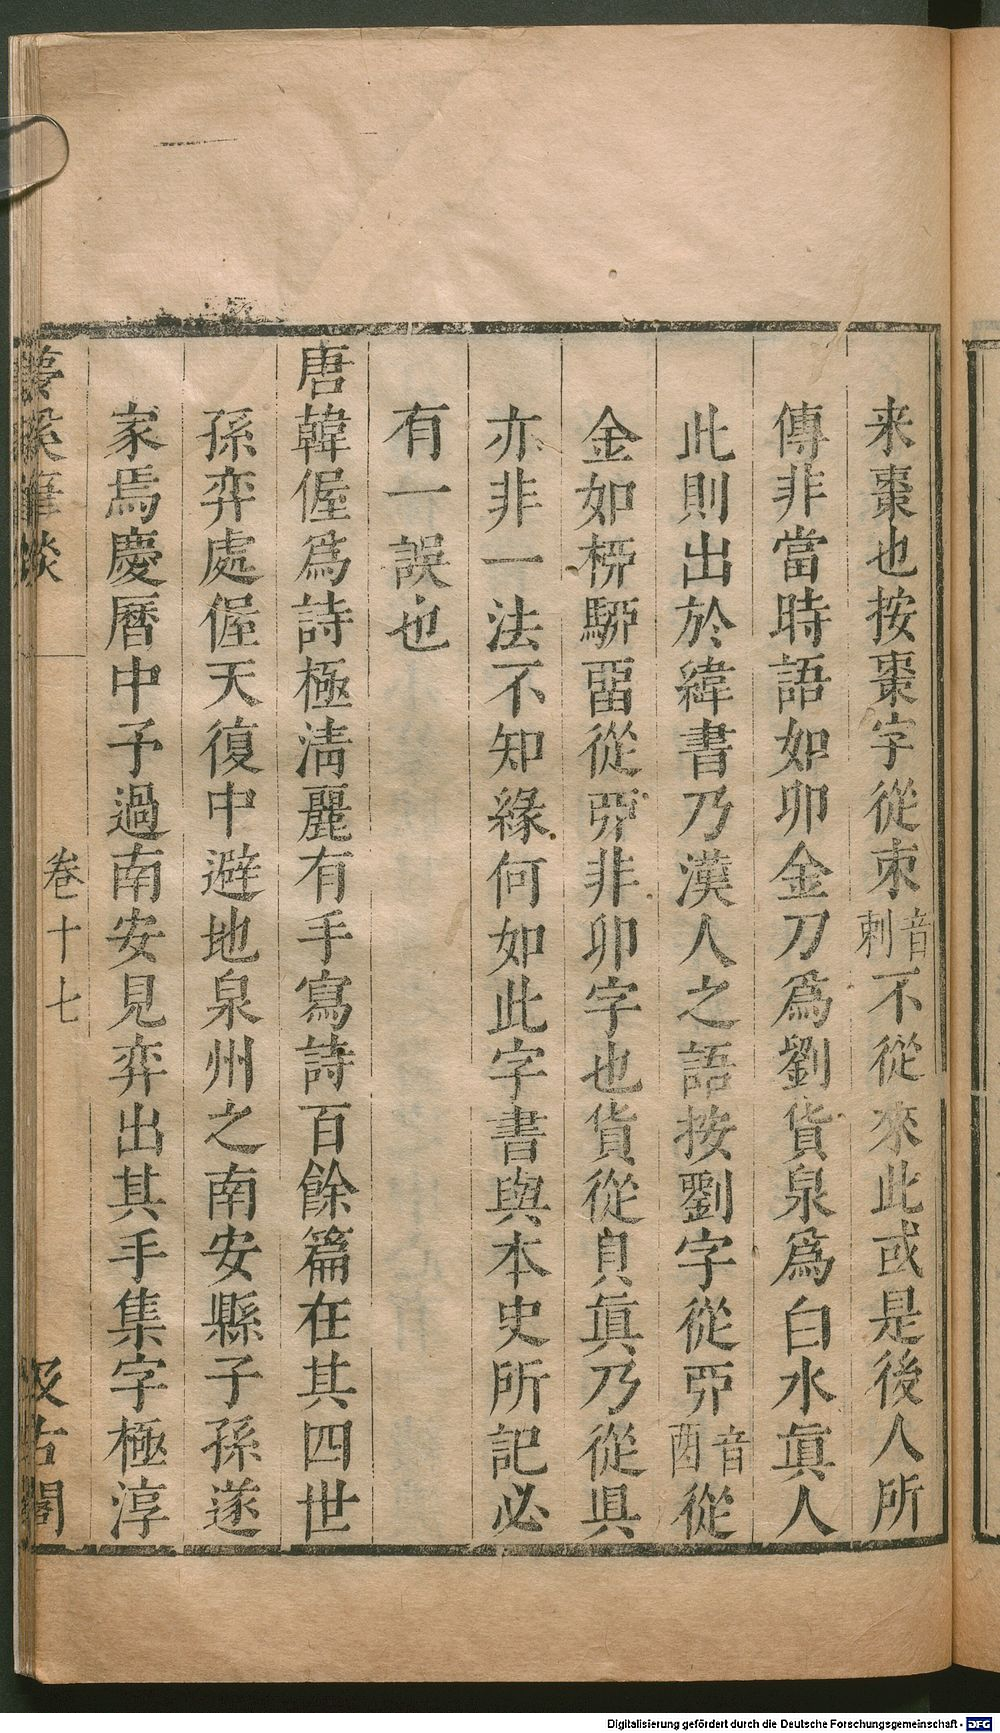 来棗也按棗字從朿音刺不從來此或是後人所
傳非當時語如卯金刀爲劉貨泉爲白水眞人
此則出於緯書乃漢人之語按劉字從丣音酉從
金如桺駵畱從丣非卯字也貨從貝眞乃從具
亦非一法不知緣何如此字書與本史所記必
有一誤也
唐韓偓爲詩極淸麗有手寫詩百餘篇在其四世
孫弈處偓天復中避地泉州之南安縣子孫遂
家焉慶曆中予過南安見弈出其手集字極淳
夢溪筆談 卷十七 汲古閣
Digitalisierung gefördert durch die Deutsche Forschungsgemeinschaft - DFG